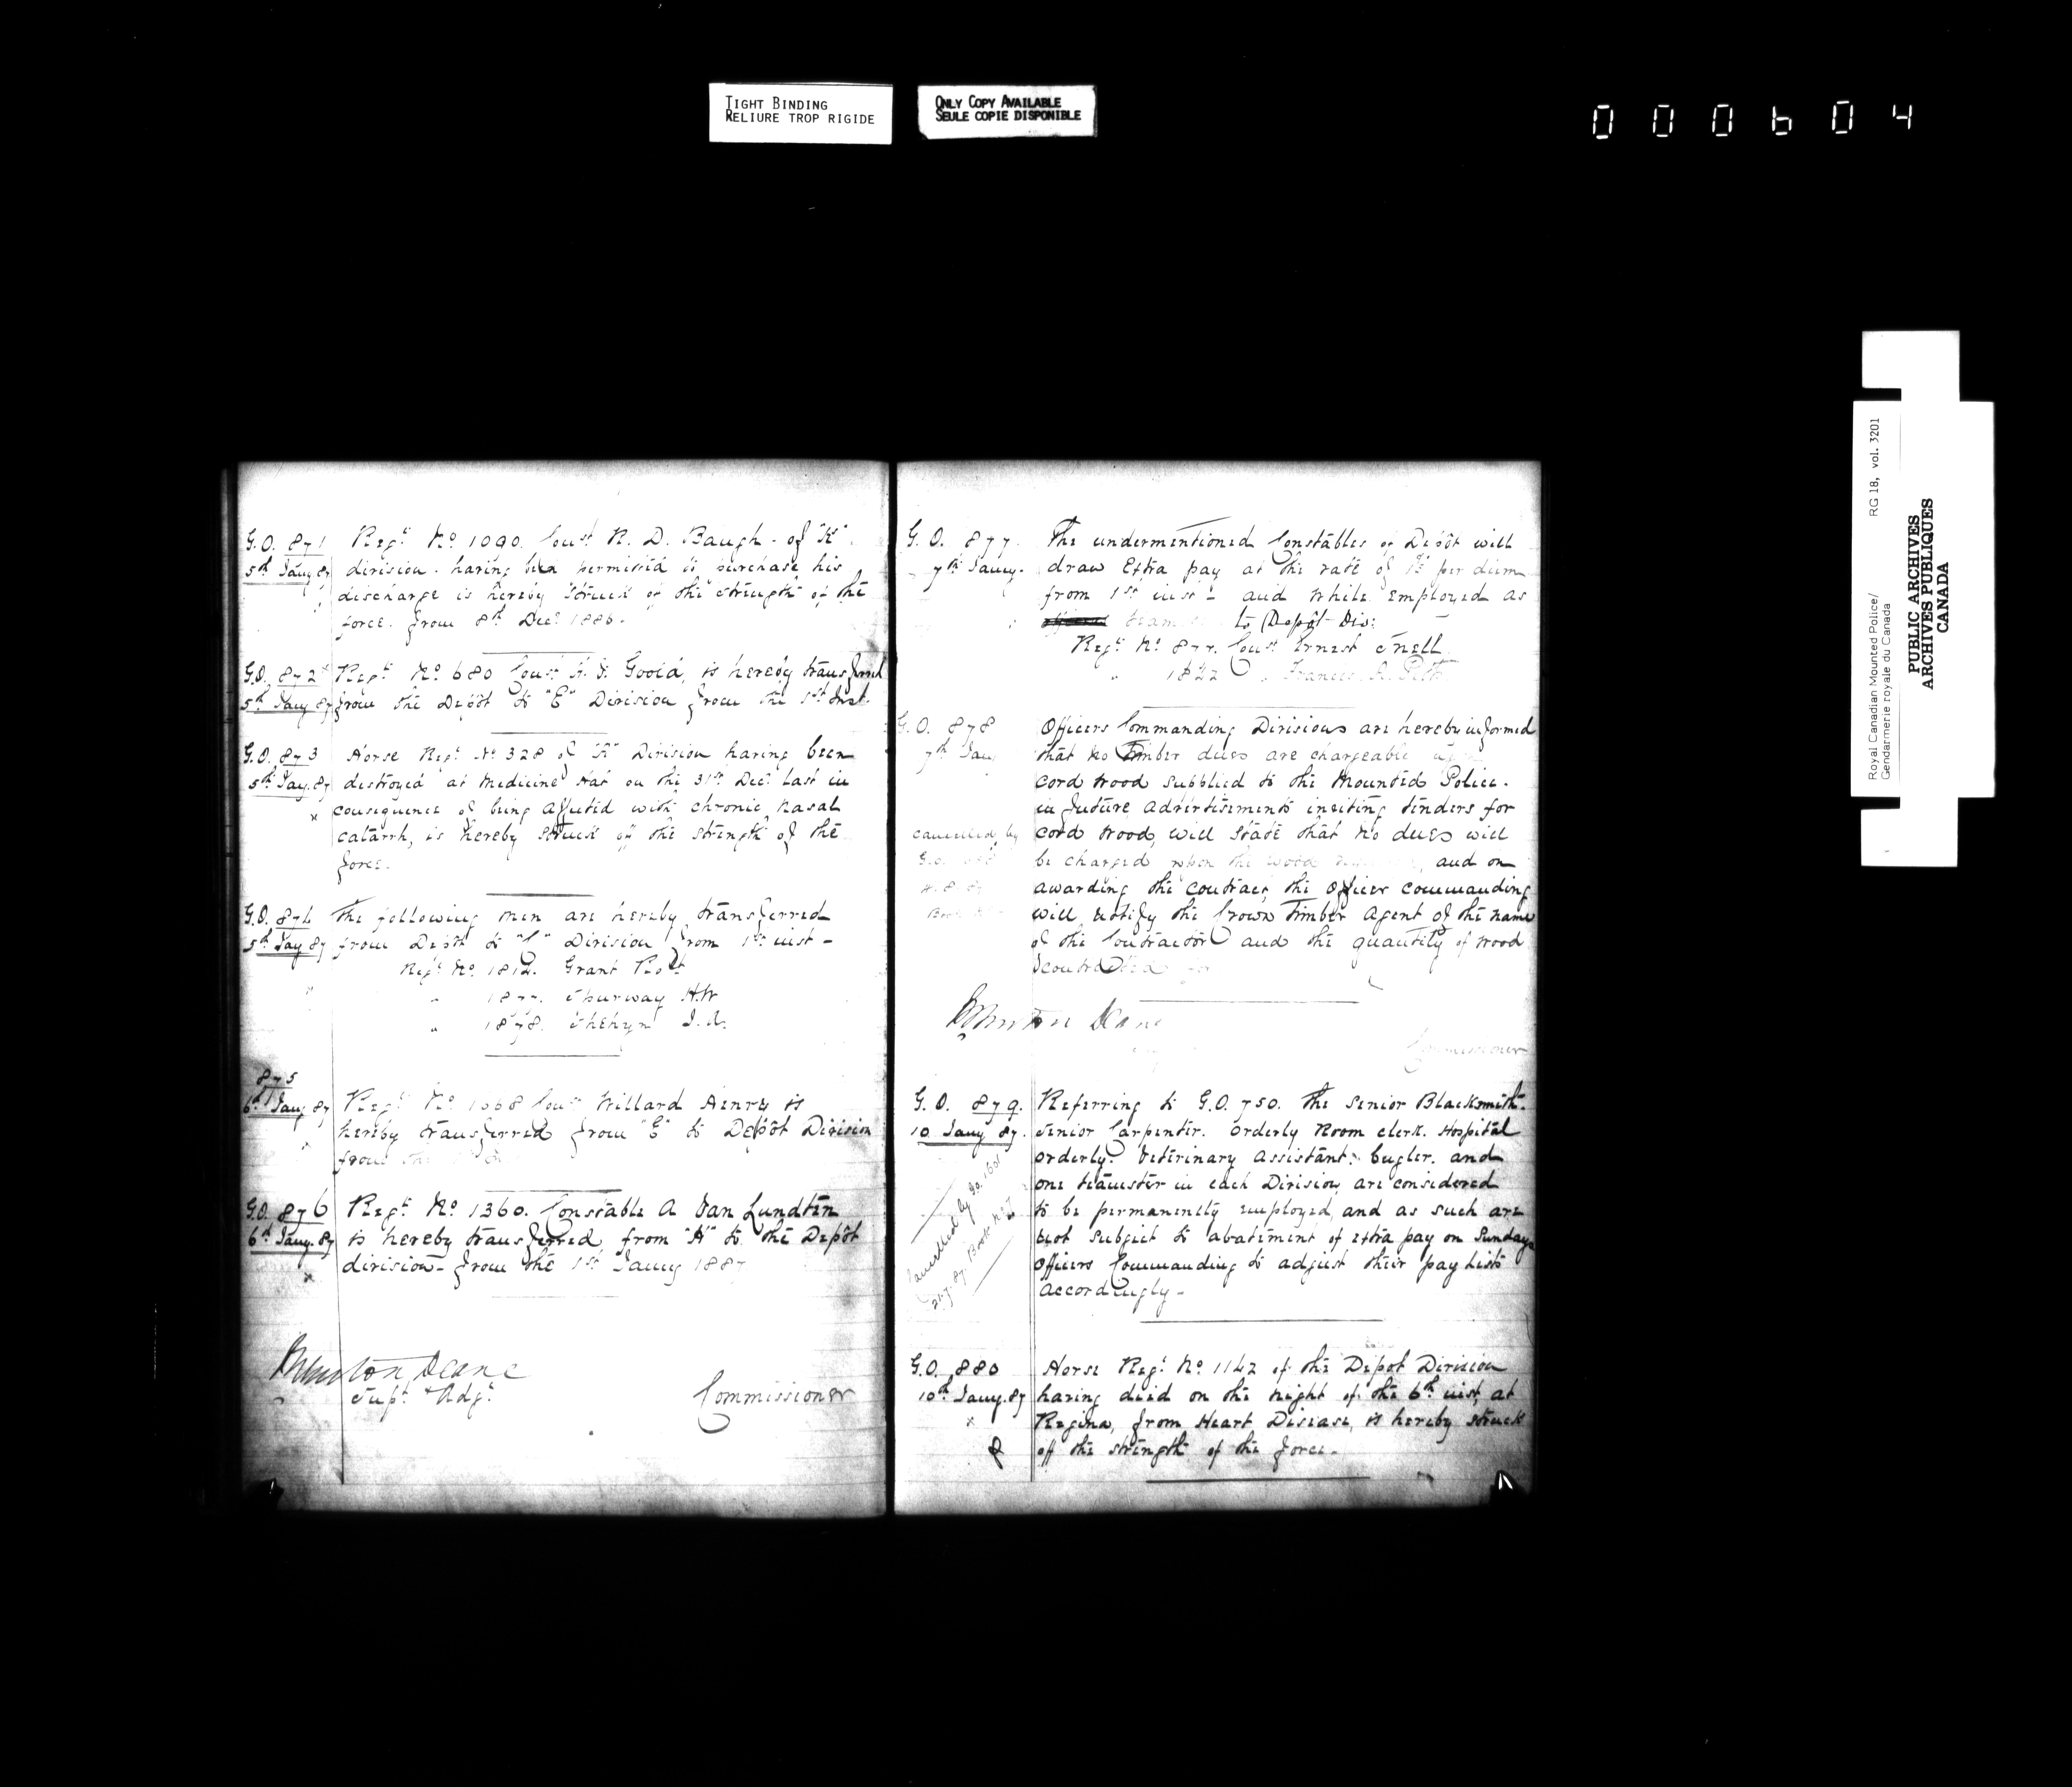 TIGHT BINDING
RELIURE TROP RIGIDE
ONLY COPY AVAILABLE
SEULE COPIE DISPONIBLE
000604
G.O. 871
5th Jany 87
Regt No 1090. Const R. D. Baugh - of "K"
division. having been permitted to purchase his
discharge is hereby struck off the strength of the
force. from 8th Decr 1886.
G.O. 872
5th Jany 87
Regt No 680 Const Goold, is hereby transferred
from the Depôt to "E" Division from the 1st Inst.
G.O. 873
5th Jany. 87
Horse Regt No 328 of Division having been
destroyed at Medicine Hat on the 31st Decr last in
consequence of being affected with chronic nasal
catarrh, is hereby struck off the strength of the
force.
G.O. 874
5th Jany 87
The following men are hereby transferred
from Depôt to Division from 1st inst -
Regt No. 1812. Grant
" Churway H.W
" 1878.
875
6th Jany 87
Regt No Const Willard Henry is
hereby transferred from to Depôt Division
from the
G.O. 876
6th Jany. 87
Regt No 1360. Constable A Van Lundten
is hereby transferred from to the Depôt
division - from the 1st Jany 1887
Burton Deane
Supt & Adjt
Commissioner
G.O. 877.
7th Jany.
The undermentioned Constables of Depôt will
draw Extra pay at the rate of per diem
from 1st inst - and while employed as
to Depôt Div:
Regt No 877. Const Ernest Snell
" 1822 " Francis
G.O. 878
7th Jany
Officers Commanding Divisions are hereby informed
that no Timber dues are chargeable
cord wood supplied to the Mounted Police.
in future advertisements inviting tenders for
cord wood, will state that no dues will
be charged when the wood and on
awarding the contract, the Officer commanding
will notify the Crown Timber Agent of the name
of the Contractor and the quantity of wood
contracted for
cancelled by
G.O.
Book
Burton Deane
Commissioner
G.O. 879.
10 Jany 87.
Referring to G.O. 750. The Senior Blacksmith.
Senior Carpenter. Orderly Room clerk. Hospital
orderly. Veterinary Assistant. Bugler. and
one teamster in each Division, are considered
to be permanently employed, and as such are
not subject to abatement of extra pay on Sundays
Officers Commanding to adjust their pay lists
accordingly -
Cancelled by Go. 1601
21.7.87. Book No 2
G.O. 880
10th Jany. 87
Horse Regt No 1142 of the Depot Division
having died on the night of the 6th inst, at
Regina, from Heart Disease, is hereby struck
off the strength of the force -
Royal Canadian Mounted Police/
Gendarmerie royale du Canada
RG 18, vol. 3201
PUBLIC ARCHIVES
ARCHIVES PUBLIQUES
CANADA